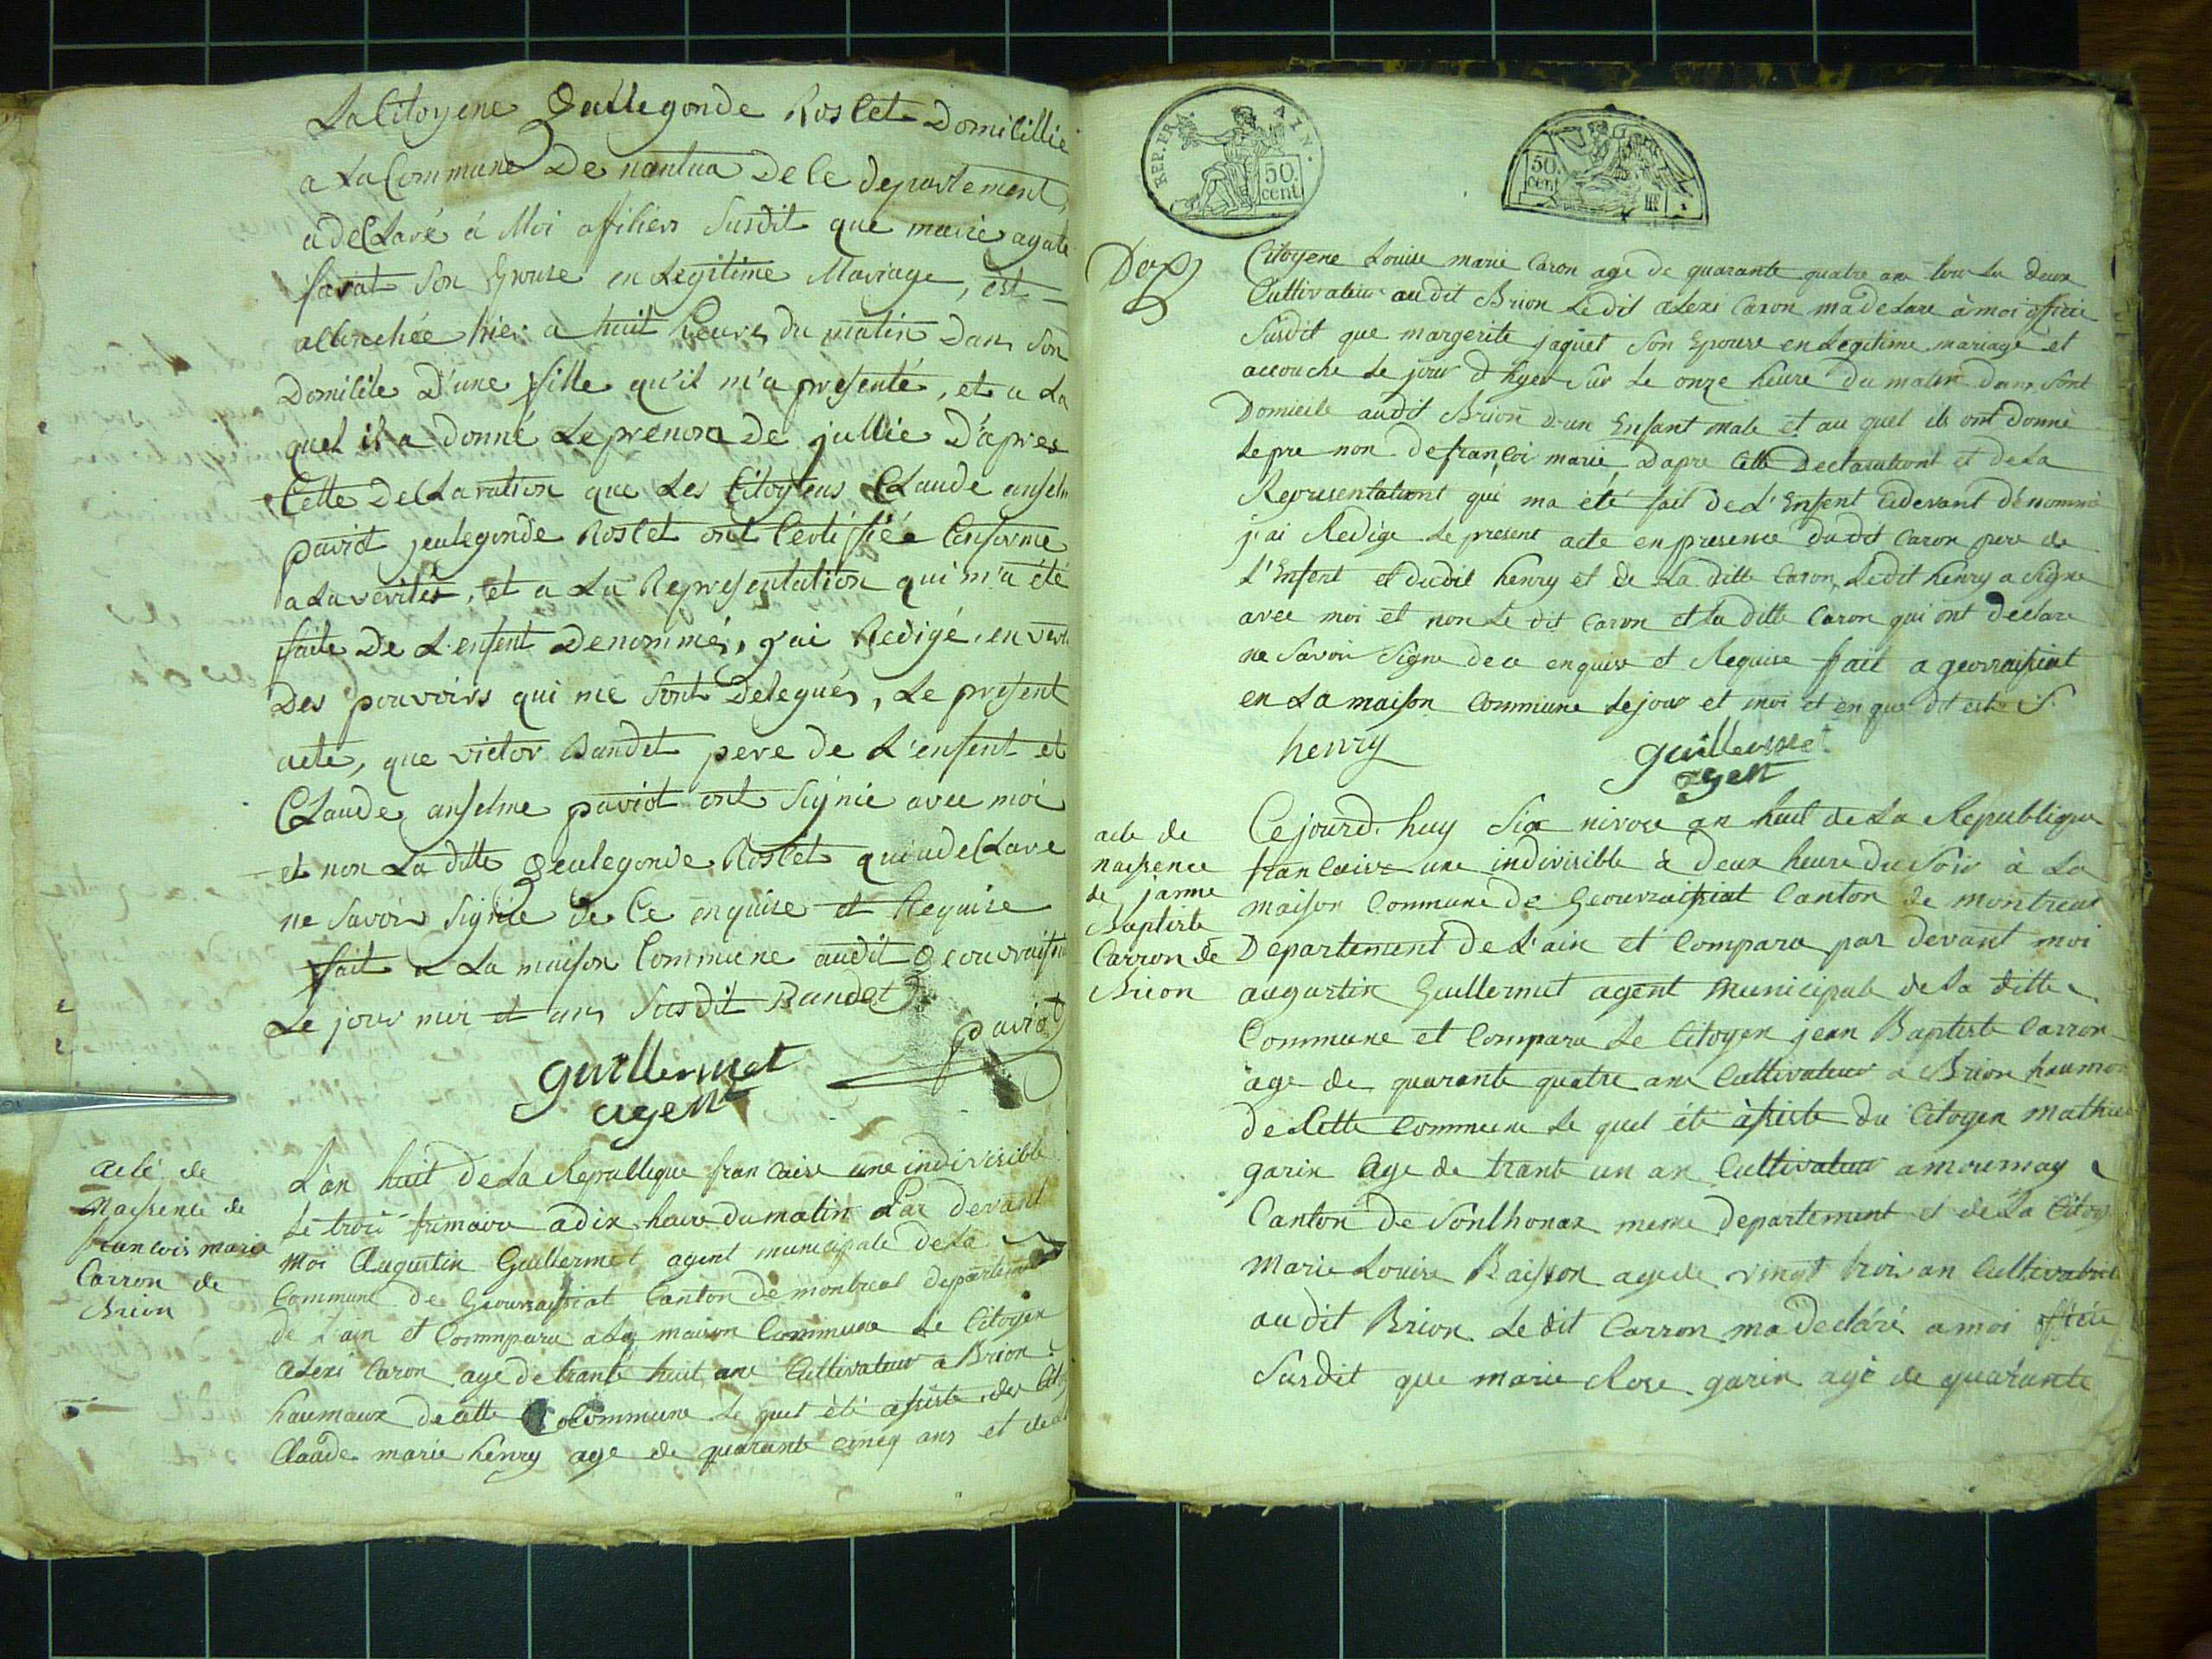 La Citoyene Gullegonde Roslet Domicillié
a La Commune De nantua De Ce departement,
a deClaré á Moi officiers Susdit que marie agate
favat Son Epouse en Legitime Mariage, est
accouchée hier a huit heures du matin Dans Son
Domicile D'une fille qu'il m'a presenté, et a La
quel il a donné Le prenom de jullie D'apres
Cette DeClaration que Les Citoyens CLaude anselm
paviot jeulegonde Roslet ont Certiffiée Conforme
a La vérités, et a La Representation qui m'a été
faite De L'enfent Denommés, j'ai Redigé, en vertu
Des pouvoirs qui me Sont Delegués, Le present
acte, que victor Baudet pere de L'enfent et
CLaude anselme paviot ont Signié avec moi
et non La ditte Geulegonde Roslet qui a deClaré
ne Savoir Signie de Ce enquise et Requise
fait a La maison Commune audit
Le jour moi et ans Susdit Baudet
paviot
guillermet
agent
acte de
Naissence de
francois marie
Carron de
Brion
L'an huit de La Republique francaise une indivisible
Le troi frimaire a dix heure du matin Par devant
moi Augustin Guillermet agent municipale de La
Commune de Geovraissiat Canton de montreal departement
de L'ain et Commparu a La maison Commune Le Citoyen
aLexi Caron age de trante huit ans Cultivateur a Brion
haumaux de cette Commune Le quel été assiste du
Claude marie henry age de quarante cinq ans et de
REP. FRA. AIN.
50. cent
50. cent
Citoyene Louise marie Caron age de quarante quatre ans tous Les deux
Cultivateur audit Brion Ledit aLexi Caron ma deLare à moi officie
Susdit que margerite jaquet Son Epouse en Legitime mariage et
accouche Le jour d'hyer Sur Le onze heure du matin dans Sont
Domicile audit Brion d'un Enfant male et au quel ils ont donné
Le pre non de françoi marie Dapre Cette Declarationt et de La
Representationt qui ma été fait de L'Enfent Cidevant dénommé
j'ai Redige Le present acte en presence dudit Caron pere de
L'Enfent et dudit henry et de La ditte Caron, Ledit henry a Signe
avec moi et non Le dit Caron et La ditte Caron qui ont declare
ne Savoir Signe de ce enquise et Requise fait a geovraissiat
en La maison Commune Le jour et moi et en que dit est S.
henry guillermet
agent
acte de
naissence
de janne
Baptiste
Carron de
Brion
Ce jourd. huy Six nivose an huit de La Republique
francaise une indivisible à deux heure du Soir à La
maison Commune de Geouvraissiat Canton de montreal
Departement de L'ain et Comparu par devant moi
augustin Guillermet agent Municipale de La ditte
Commune et Comparu Le Citoyen jean Baptiste Carron
age de quarante quatre ans Cultivateur a Brion haumo
de Cette Commune Le quel été assiste du Citoyen mathieu
garin Age de trante un an Cultivateur a mournay
Canton de Sonthonax meme departement et de La Citoy
Marie Louise Baisson age de vingt trois an Cultivatri
audit Brion Le dit Carron ma declaré a moi officie
Susdit que marie Rose garin agé de quarante